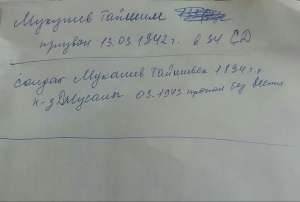 Мукушев Таймыш
призван 13.03.1942г. в 34 СД
солдат Мукашев Тайшибек 1894г.р
к-з Джусалы 03.1943 пропал без вести